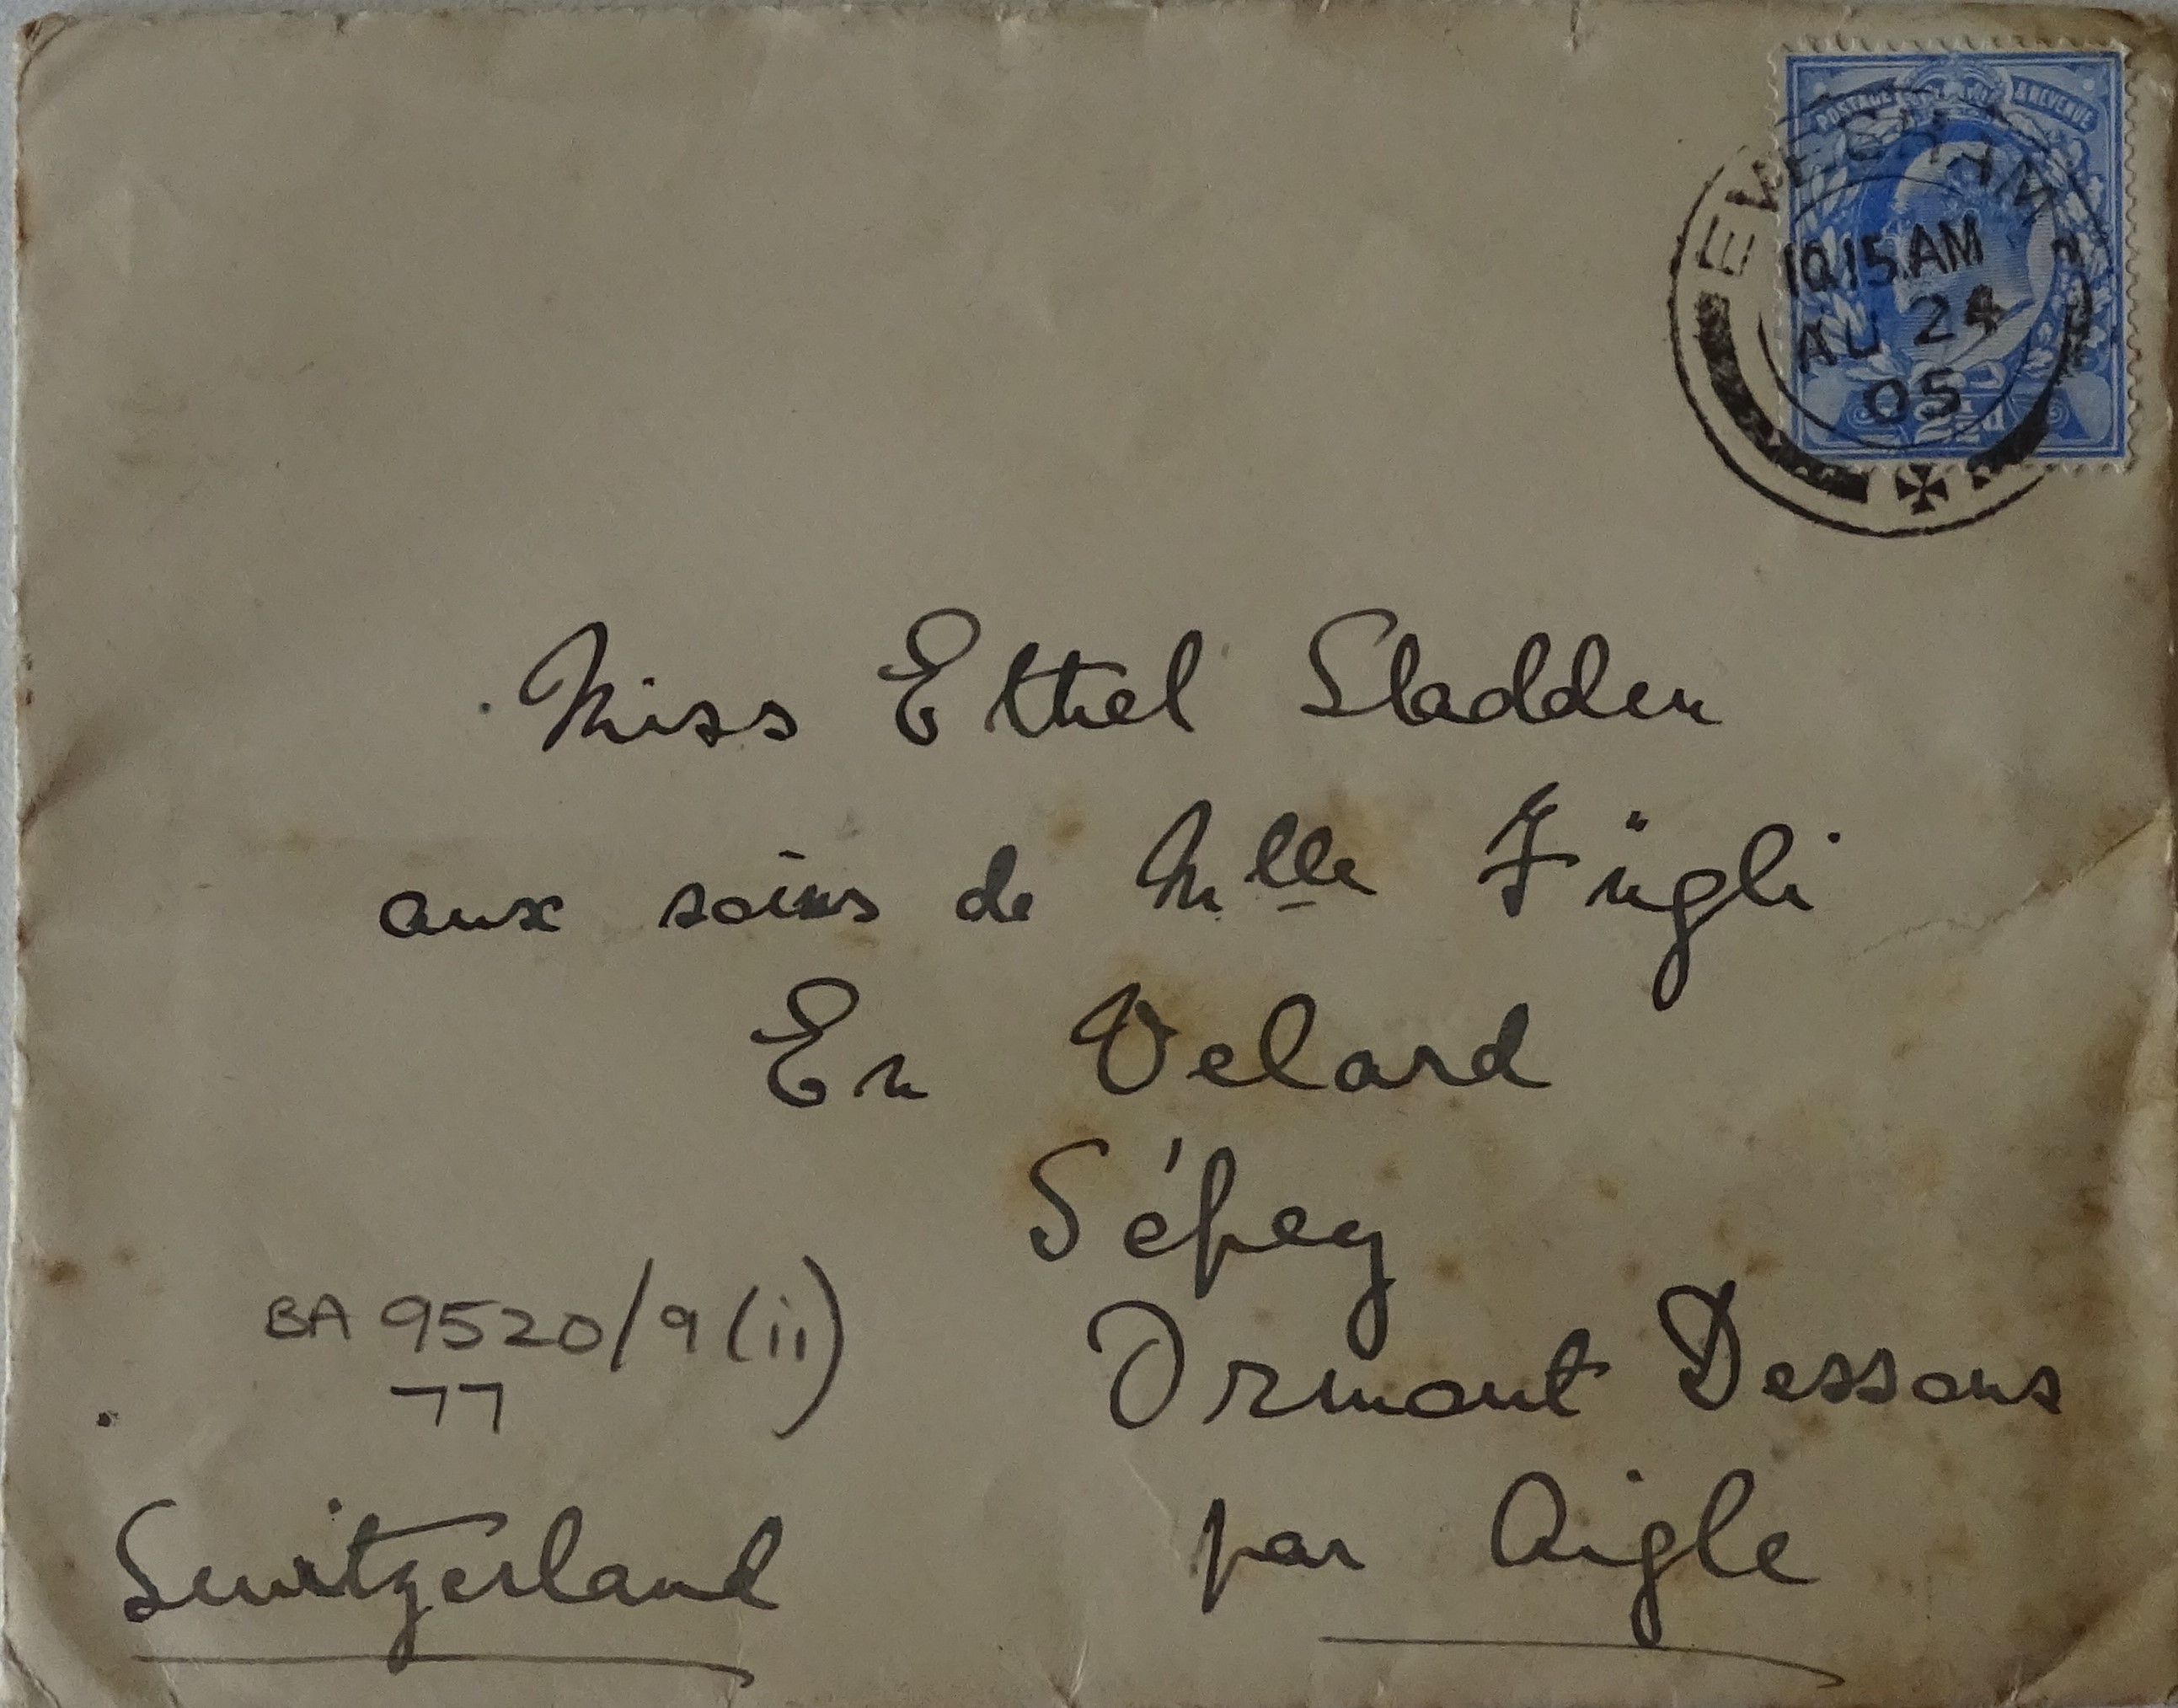 POSTAGE & REVENUE
EVESHAM
10.15 AM
AU 24
05
2½d
Miss Ethel Sladden
aux soins de Mlle Fügli
En Velard
Sépey
Ormont Dessous
par Aigle
BA 9520/9(ii)
77
Switzerland